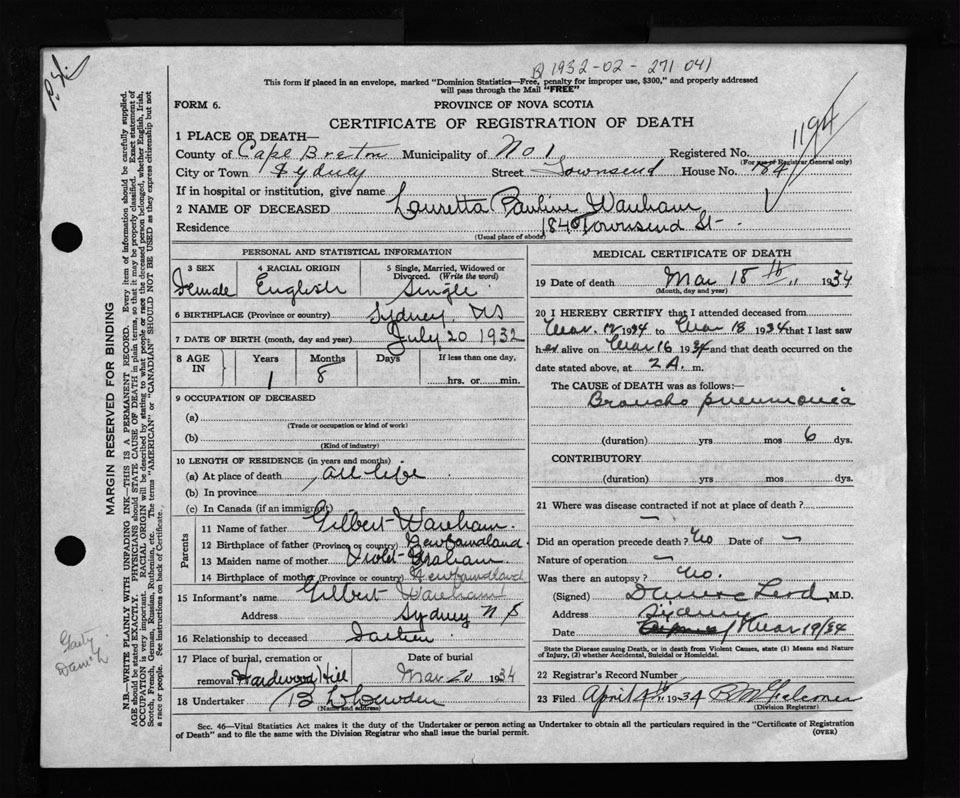 B) 1932-02-271041
This form if placed in an envelope, marked "Dominion Statistics—Free, penalty for improper use, $300," and properly addressed
will pass through the Mail "FREE"
FORM 6.
PROVINCE OF NOVA SCOTIA
CERTIFICATE OF REGISTRATION OF DEATH
1194
1 PLACE OF DEATH—
County of Cape Breton Municipality of No 1 Registered No.
(For use of Registrar General only)
City or Town Sydney Street Townsend House No. 184
If in hospital or institution, give name
2 NAME OF DECEASED Lauretta Pauline Wareham
Residence 184 Townsend St
(Usual place of abode)
PERSONAL AND STATISTICAL INFORMATION
3 SEX 4 RACIAL ORIGIN 5 Single, Married, Widowed or
Divorced. (Write the word)
Female English Single
6 BIRTHPLACE (Province or country) Sydney, NS
7 DATE OF BIRTH (month, day and year) July 20 1932
8 AGE IN Years Months Days If less than one day,
1 8 hrs. or min.
9 OCCUPATION OF DECEASED
(a)
(Trade or occupation or kind of work)
(b)
(Kind of industry)
10 LENGTH OF RESIDENCE (in years and months)
(a) At place of death all life
(b) In province
(c) In Canada (if an immigrant)
Parents
11 Name of father Gilbert Wareham
12 Birthplace of father (Province or country) Newfoundland
13 Maiden name of mother Violet Graham
14 Birthplace of mother (Province or country) Newfoundland
15 Informant's name Gilbert Wareham
Address Sydney N S
16 Relationship to deceased Father
17 Place of burial, cremation or Date of burial
removal Hardwood Hill Mar 20 1934
18 Undertaker
(Name and address)
MEDICAL CERTIFICATE OF DEATH
19 Date of death Mar 18th " 1934
(Month, day and year)
20 I HEREBY CERTIFY that I attended deceased from
Mar. 12 1934 to Mar 18 1934 that I last saw
her alive on Mar 16 1934 and that death occurred on the
date stated above, at 2 A. m.
The CAUSE of DEATH was as follows:—
Broncho pneumonia
(duration) yrs mos 6 dys.
CONTRIBUTORY
(duration) yrs mos dys.
21 Where was disease contracted if not at place of death?
—
Did an operation precede death? No Date of —
Nature of operation —
Was there an autopsy? No.
(Signed) M.D.
Address Sydney
Date Mar 19/34
State the Disease causing Death, or in death from Violent Causes, state (1) Means and Nature
of Injury, (2) whether Accidental, Suicidal or Homicidal.
22 Registrar's Record Number
23 Filed April 1934
(Division Registrar)
Sec. 46—Vital Statistics Act makes it the duty of the Undertaker or person acting as Undertaker to obtain all the particulars required in the "Certificate of Registration
of Death" and to file the same with the Division Registrar who shall issue the burial permit.
(OVER)
MARGIN RESERVED FOR BINDING
N.B.—WRITE PLAINLY WITH UNFADING INK—THIS IS A PERMANENT RECORD. Every item of information should be carefully supplied.
AGE should be stated EXACTLY. PHYSICIANS should STATE CAUSE OF DEATH in plain terms, so that it may be properly classified. Exact statement of
OCCUPATION is very important. RACIAL ORIGIN will be described by stating to what people or race the deceased person belonged, whether English, Irish,
Scotch, French, German, Russian, Ruthenian, etc. The terms "AMERICAN" or "CANADIAN" SHOULD NOT BE USED as they express citizenship but not
a race or people. See instructions on back of Certificate.